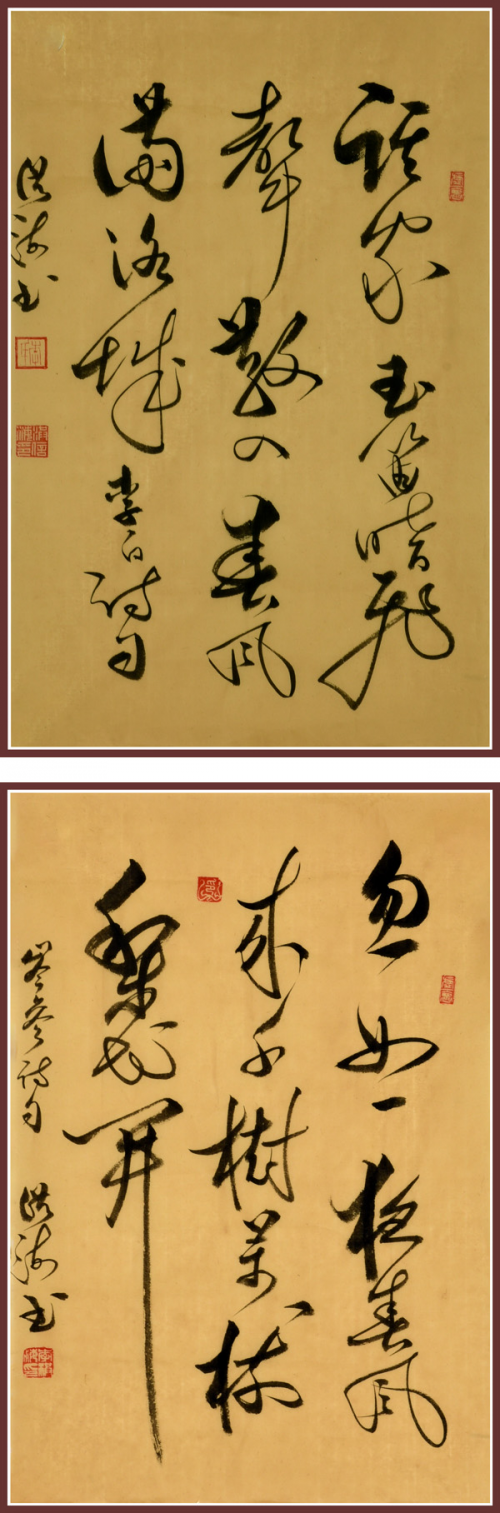 誰家玉笛暗飛
聲散入春風
滿洛城 李白詩句
洪 書
忽如一夜春風
來千樹萬樹
梨花開
岑參詩句 洪 書